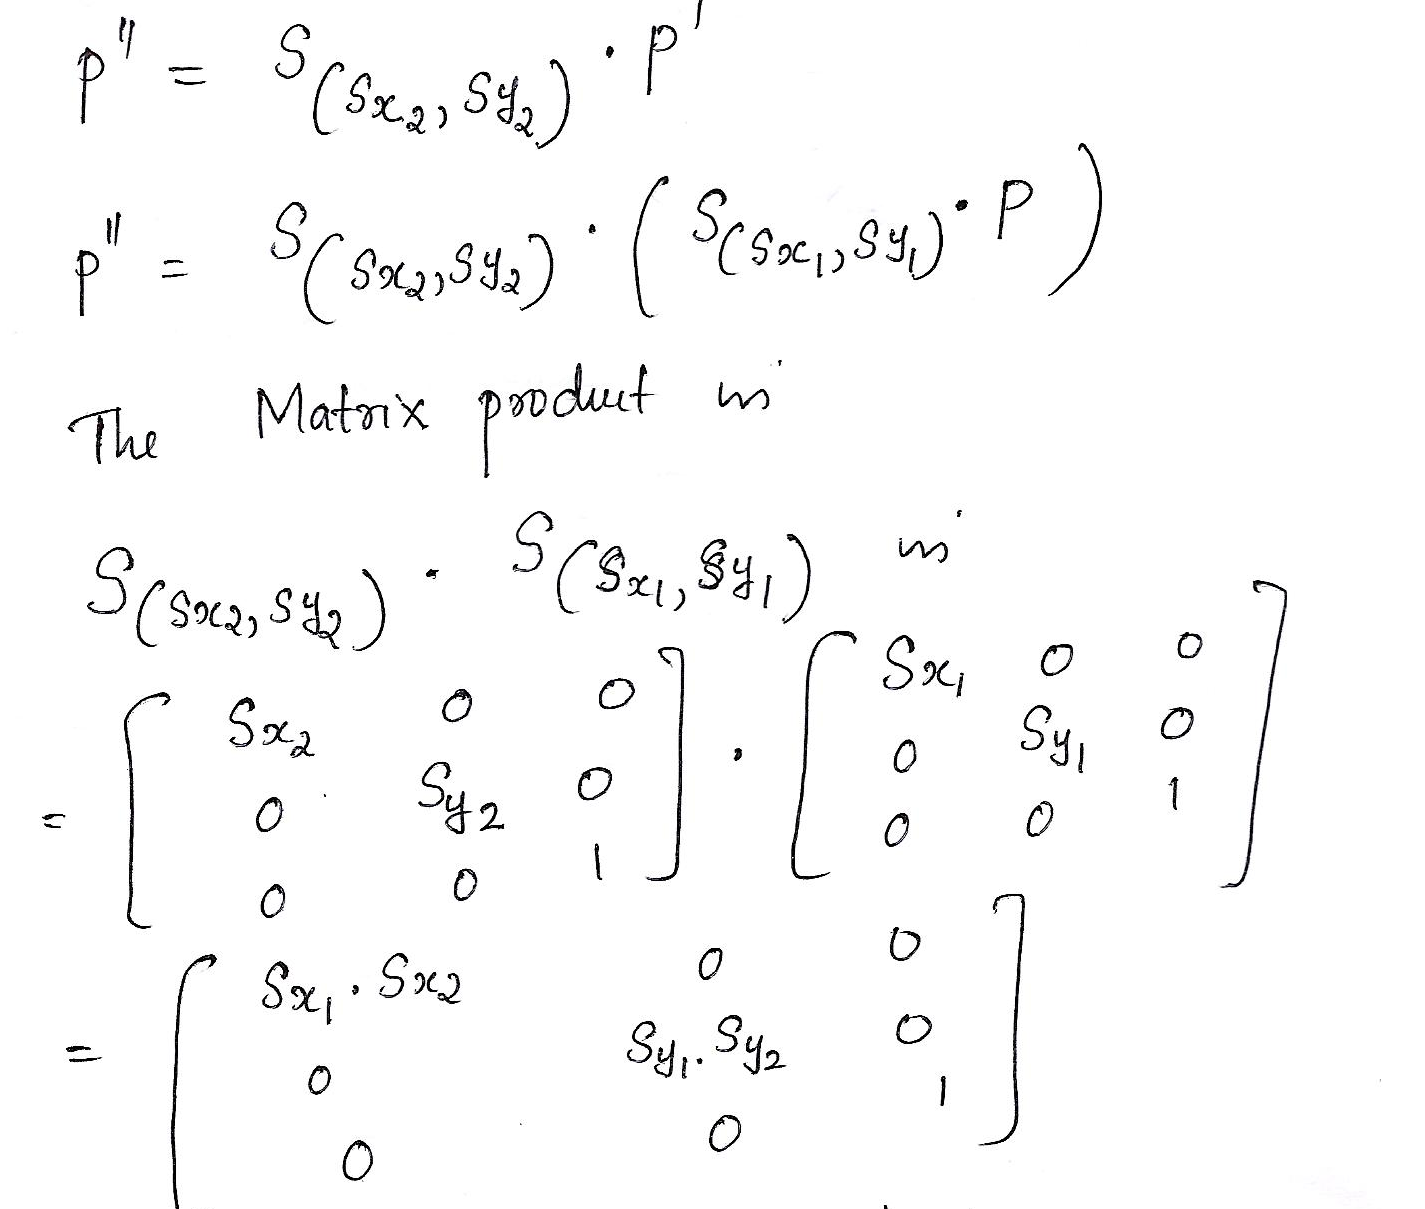 p" = S(Sx₂, Sy₂) · p'
p" = S(Sx₂, Sy₂) · ( S(Sx₁, Sy₁) · P )
The Matrix product is
S(Sx₂, Sy₂) · S(Sx₁, Sy₁) is
= [ Sx₂ 0 0 ] · [ Sx₁ 0 0 ]
[ 0 Sy₂ 0 ] [ 0 Sy₁ 0 ]
[ 0 0 1 ] [ 0 0 1 ]
= [ Sx₁ · Sx₂ 0 0 ]
[ 0 Sy₁ . Sy₂ 0 ]
[ 0 0 1 ]